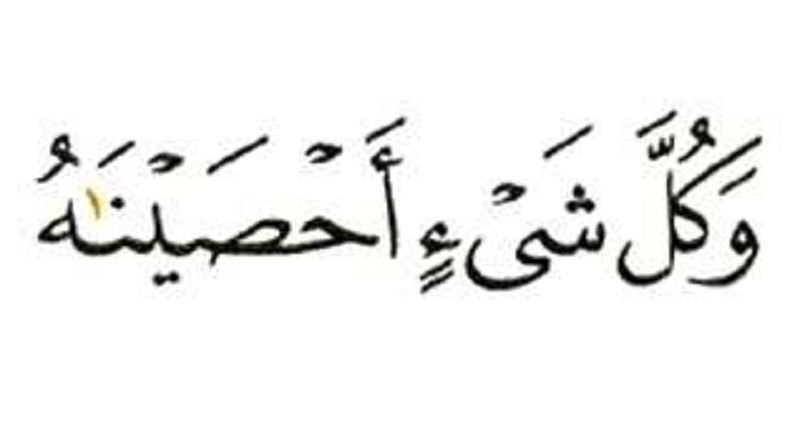 وَكُلَّ شَىْءٍ أَحْصَيْنَٰهُ